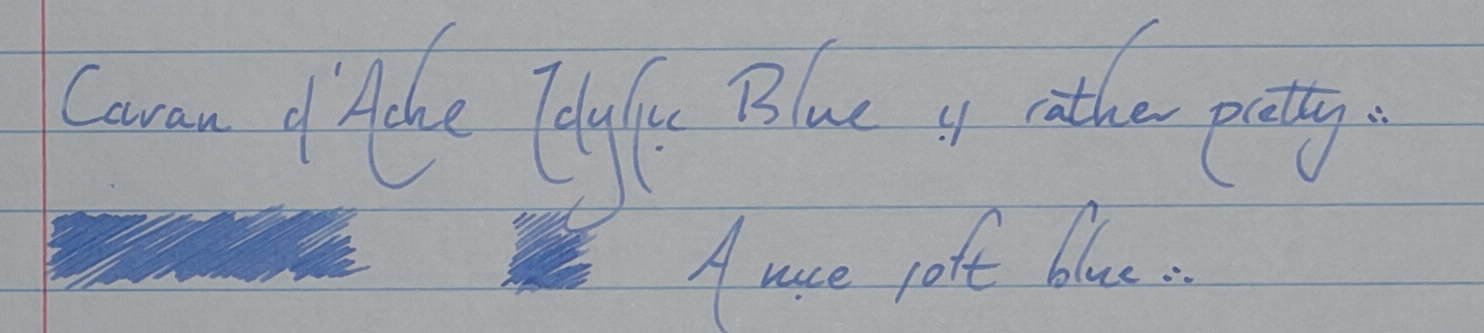 Caran d'Ache Idyllic Blue is rather pretty ∴
A nice soft blue ∴